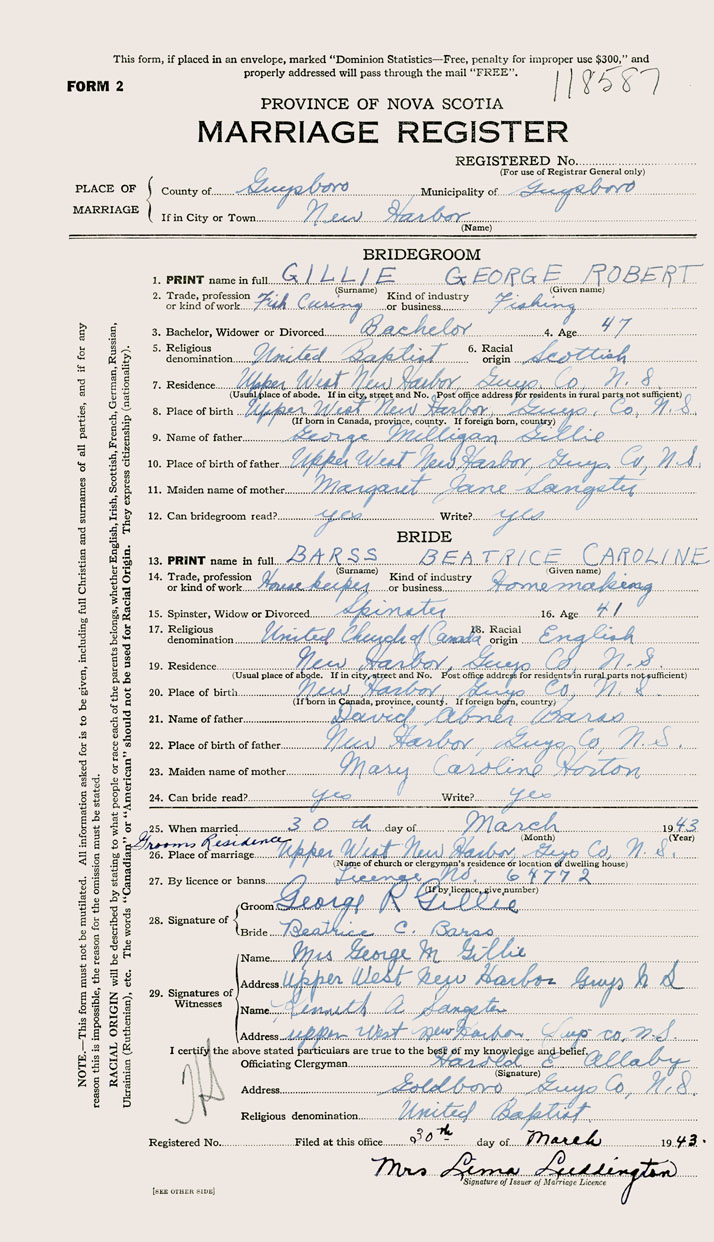 This form, if placed in an envelope, marked "Dominion Statistics—Free, penalty for improper use $300," and
properly addressed will pass through the mail "FREE".
118587
FORM 2
PROVINCE OF NOVA SCOTIA
MARRIAGE REGISTER
REGISTERED No.
(For use of Registrar General only)
PLACE OF MARRIAGE
County of Guysboro Municipality of Guysboro
If in City or Town New Harbor
(Name)
BRIDEGROOM
1. PRINT name in full GILLIE GEORGE ROBERT
(Surname) (Given name)
2. Trade, profession or kind of work Fish Curing Kind of industry or business Fishing
3. Bachelor, Widower or Divorced Bachelor 4. Age 47
5. Religious denomination United Baptist 6. Racial origin Scottish
7. Residence Upper West New Harbor, Guys. Co, N. S.
(Usual place of abode. If in city, street and No. Post office address for residents in rural parts not sufficient)
8. Place of birth Upper West New Harbor, Guys. Co, N. S.
(If born in Canada, province, county. If foreign born, country)
9. Name of father George Milligan Gillie
10. Place of birth of father Upper West New Harbor, Guys. Co, N. S.
11. Maiden name of mother Margaret Jane Sangster
12. Can bridegroom read? yes Write? yes
BRIDE
13. PRINT name in full BARSS BEATRICE CAROLINE
(Surname) (Given name)
14. Trade, profession or kind of work Housekeeper Kind of industry or business Homemaking
15. Spinster, Widow or Divorced Spinster 16. Age 41
17. Religious denomination United Church of Canada 18. Racial origin English
19. Residence New Harbor, Guys Co, N. S.
(Usual place of abode. If in city, street and No. Post office address for residents in rural parts not sufficient)
20. Place of birth New Harbor, Guys Co, N. S.
(If born in Canada, province, county. If foreign born, country)
21. Name of father David Abner Barss
22. Place of birth of father New Harbor, Guys Co, N. S.
23. Maiden name of mother Mary Caroline Horton
24. Can bride read? yes Write? yes
25. When married 30 th day of March 1943
(Month) (Year)
Grooms Residence
26. Place of marriage Upper West New Harbor, Guys Co, N. S.
(Name of church or clergyman's residence or location of dwelling house)
27. By licence or banns License No. 64772
(If by licence, give number)
28. Signature of
Groom George R Gillie
Bride Beatrice C. Barss
29. Signatures of Witnesses
Name Mrs George M Gillie
Address Upper West New Harbor Guys N S
Name Kenneth A Sangster
Address upper West new Harbor Guys co, N. S.
I certify the above stated particulars are true to the best of my knowledge and belief.
Officiating Clergyman Harold E Allaby
(Signature)
Address Goldboro Guys Co, N. S.
Religious denomination United Baptist
Registered No. Filed at this office 30th day of March 1943.
Mrs Lima Luddington
Signature of Issuer of Marriage Licence
[SEE OTHER SIDE]
NOTE.—This form must not be mutilated. All information asked for is to be given, including full Christian and surnames of all parties, and if for any
reason this is impossible, the reason for the omission must be stated.
RACIAL ORIGIN will be described by stating to what people or race each of the parents belongs, whether English, Irish, Scottish, French, German, Russian,
Ukrainian (Ruthenian), etc. The words "Canadian" or "American" should not be used for Racial Origin. They express citizenship (nationality).